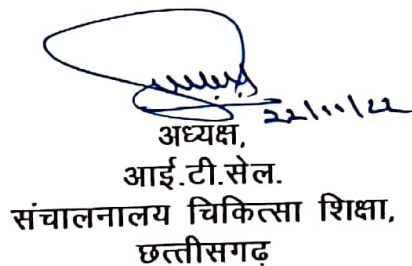 22/11/22
अध्यक्ष,
आई.टी.सेल.
संचालनालय चिकित्सा शिक्षा,
छत्तीसगढ़